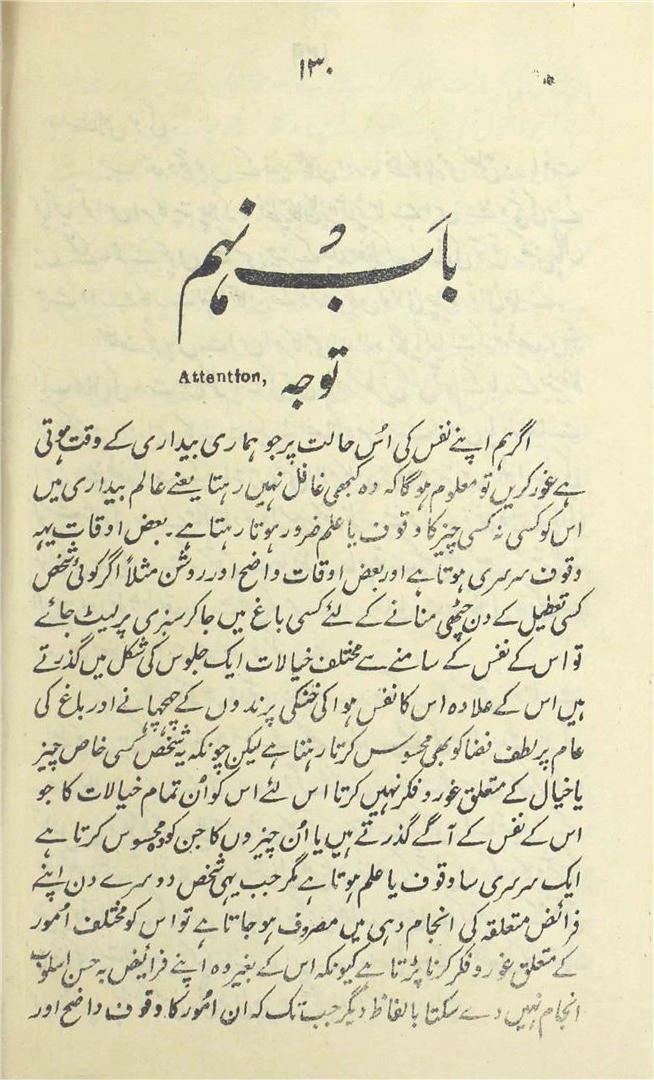 ۱۳۰
باب نہم
توجہ Attention,
اگر ہم اپنے نفس کی اُس حالت پر جو ہماری بیداری کے وقت ہوتی
ہے غور کریں تو معلوم ہوگا کہ وہ کبھی غافل نہیں رہتا یعنے عالم بیداری میں
اس کو کسی نہ کسی چیز کا وقوف یا علم ضرور ہوتا رہتا ہے۔ بعض اوقات یہہ
وقوف سرسری ہوتا ہے اور بعض اوقات واضح اور روشن مثلاً اگر کوئی شخص
کسی تعطیل کے دن چھٹی منانے کے لئے کسی باغ میں جاکر سبزی پر لیٹ جائے
تو اس کے نفس کے سامنے سے مختلف خیالات ایک جلوس کی شکل میں گذرتے
ہیں اس کے علاوہ اس کا نفس ہوا کی خنکی پرندوں کے چہچہانے اور باغ کی
عام پر لطف فضا کو بھی محسوس کرتا رہتا ہے لیکن چونکہ یہ شخص کسی خاص چیز
یا خیال کے متعلق غور و فکر نہیں کرتا اس لئے اس کو اُن تمام خیالات کا جو
اس کے نفس کے آگے گذرتے ہیں یا اُن چیزوں کا جن کو وہ محسوس کرتا ہے
ایک سرسری سا وقوف یا علم ہوتا ہے مگر جب یہی شخص دوسرے دن اپنے
فرائض متعلقہ کی انجام دہی میں مصروف ہو جاتا ہے تو اس کو مختلف اُمور
کے متعلق غور و فکر کرنا پڑتا ہے کیونکہ اس کے بغیر وہ اپنے فرائیض بہ حسن اسلوب
انجام نہیں دے سکتا بالفاظ دیگر جب تک کہ ان اُمور کا وقوف واضح اور